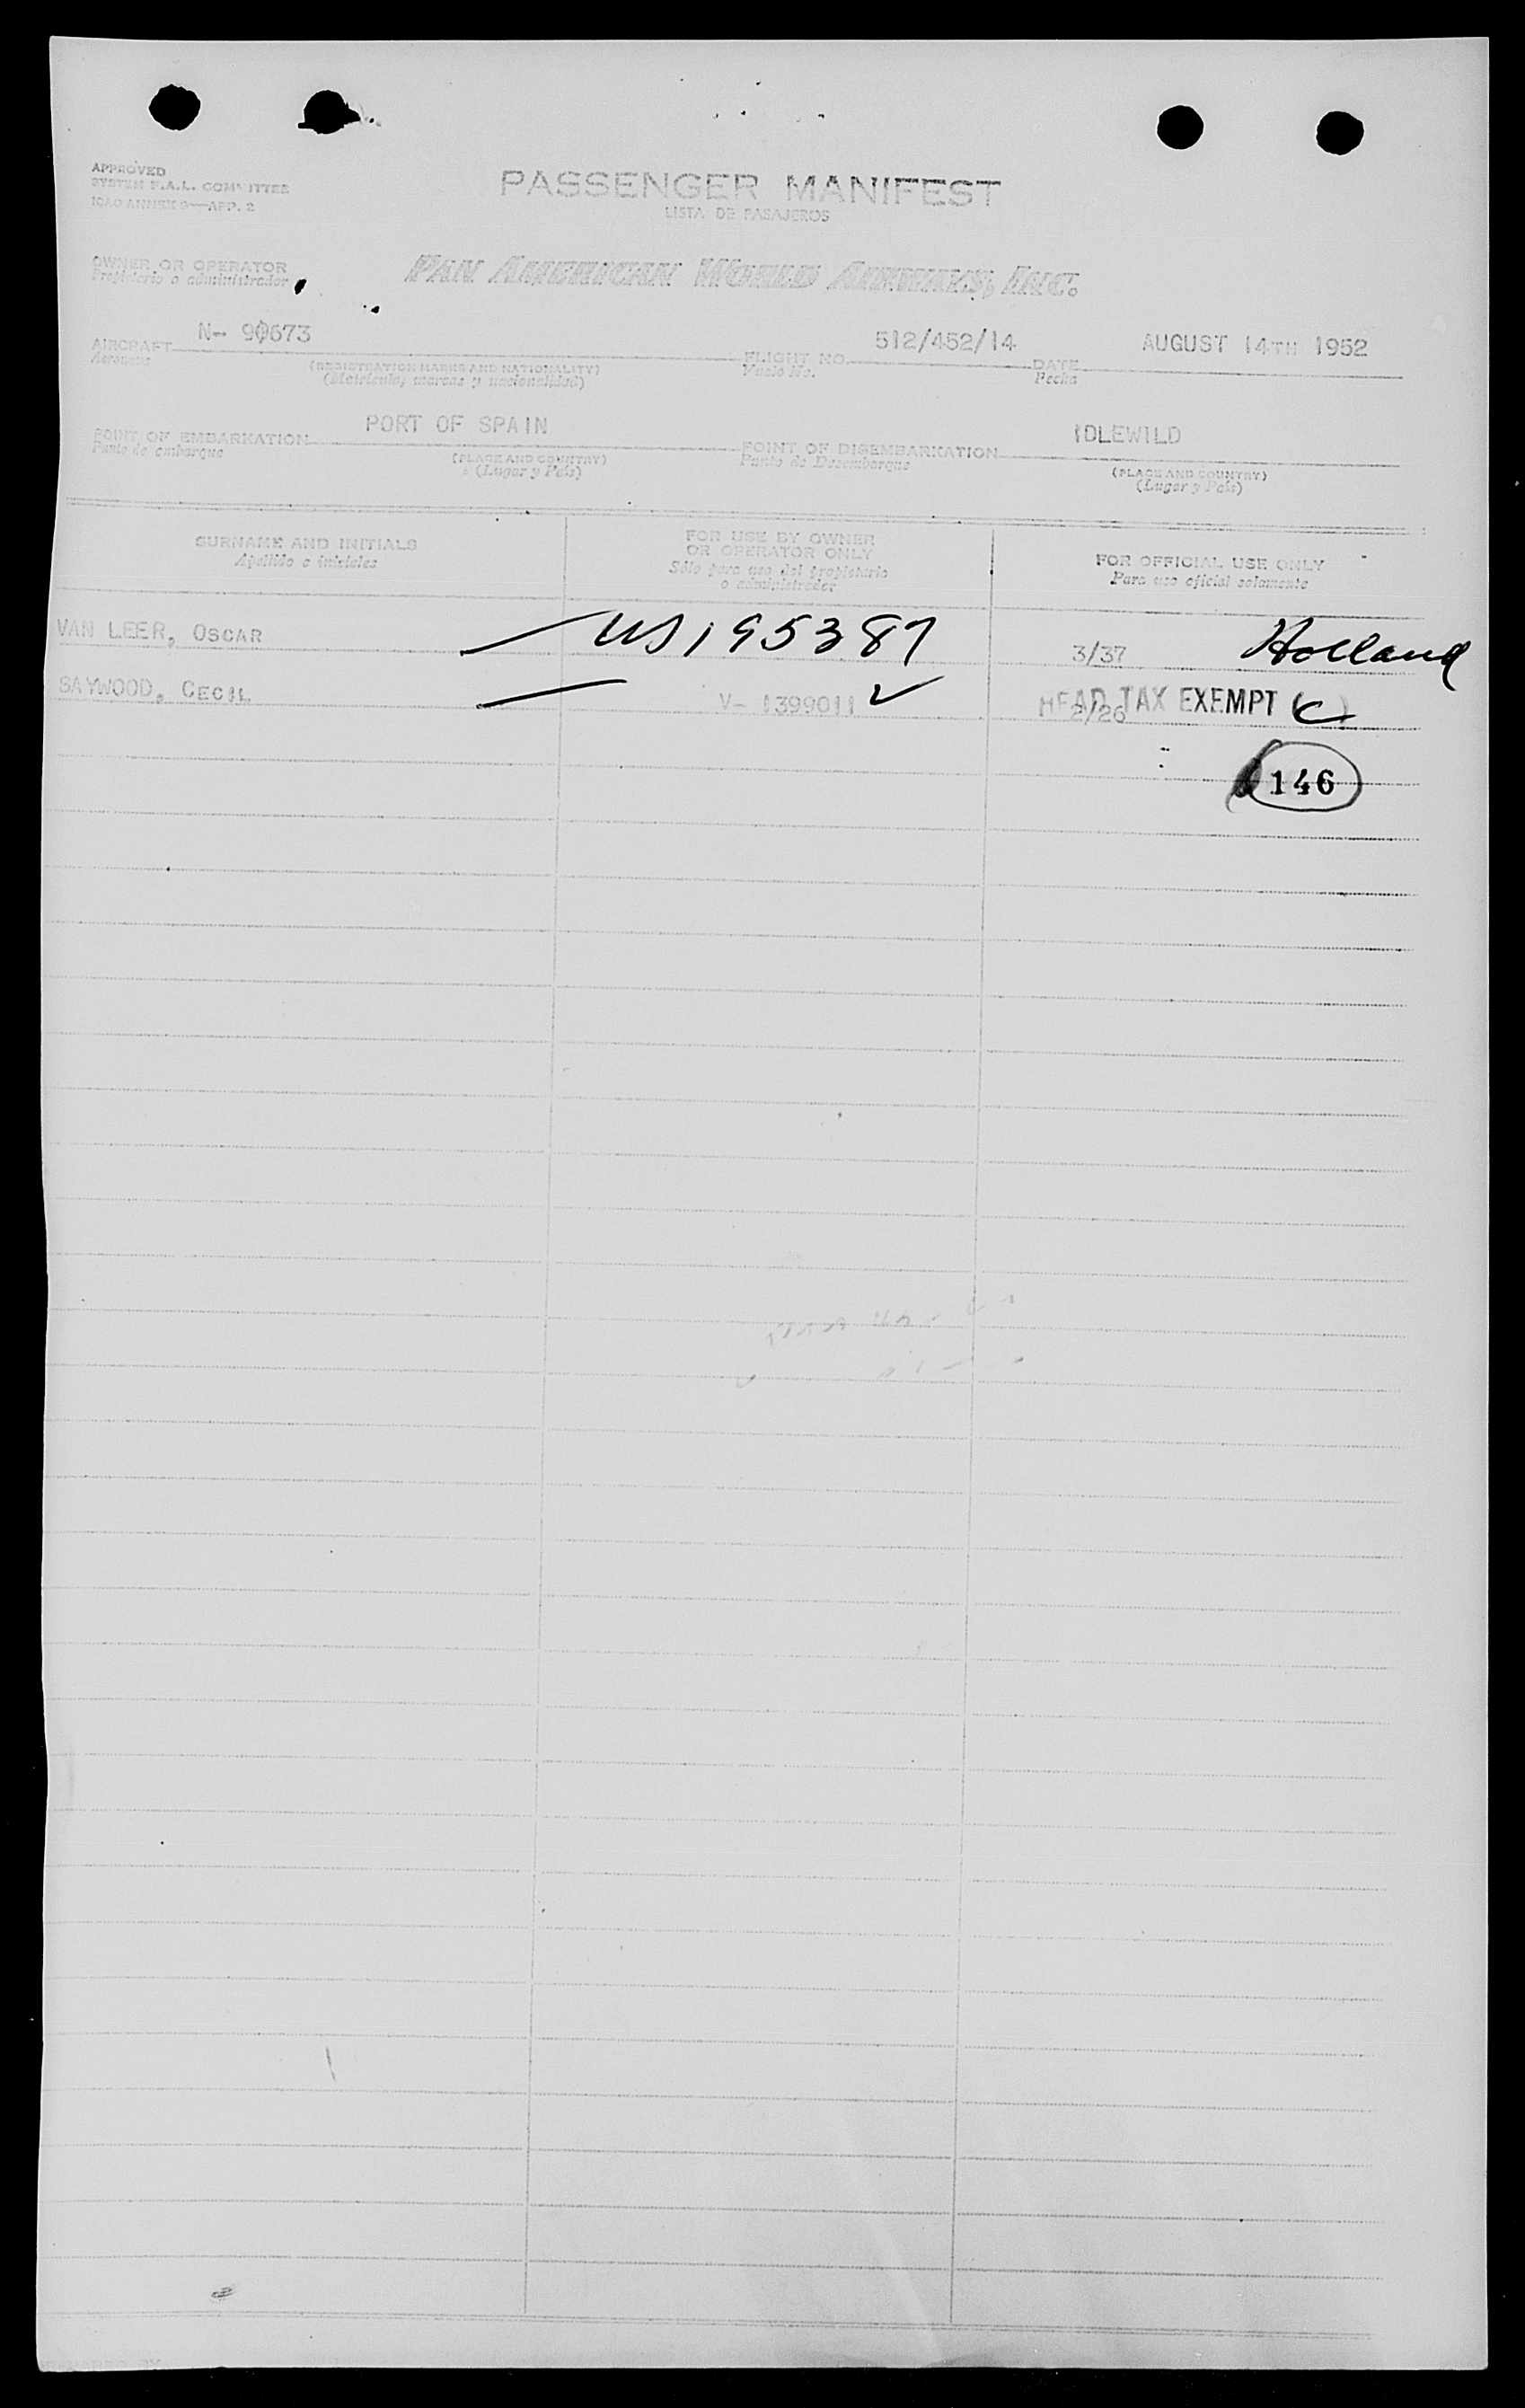 APPROVED
SYSTEM F.A.L. COMMITTEE
ICAO ANNEX 9—APP. 2
PASSENGER MANIFEST
LISTA DE PASAJEROS
OWNER OR OPERATOR
Propietario o administrador
PAN AMERICAN WORLD AIRWAYS, INC.
AIRCRAFT N- 90673 FLIGHT NO. 512/452/14 DATE AUGUST 14TH 1952
Aeronave (REGISTRATION MARKS AND NATIONALITY) Vuelo No. Fecha
(Matrícula, marcas y nacionalidad)
POINT OF EMBARKATION PORT OF SPAIN POINT OF DISEMBARKATION IDLEWILD
Punto de embarque (PLACE AND COUNTRY) Punto de Desembarque (PLACE AND COUNTRY)
(Lugar y País) (Lugar y País)
SURNAME AND INITIALS
Apellido e iniciales
FOR USE BY OWNER
OR OPERATOR ONLY
Sólo para uso del propietario
o administrador
FOR OFFICIAL USE ONLY
Para uso oficial solamente
VAN LEER, OSCAR US195387 3/37 Holland
SAYWOOD, CECIL V- 1399011 ✓ 2/26 HEAD TAX EXEMPT (C)
146